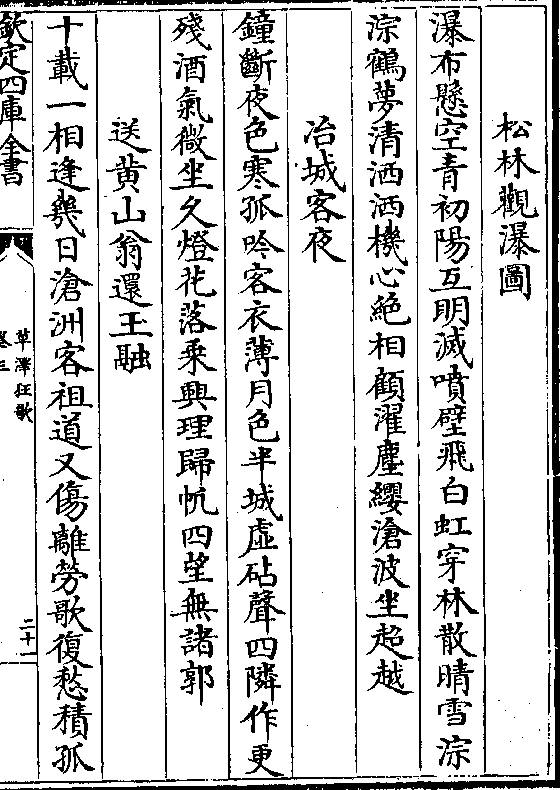 松林觀瀑圖
瀑布懸空青初陽互明滅噴壁飛白虹穿林散晴雪淙
淙鶴夢清洒洒機心絶相顧濯塵纓滄波坐超越
冶城客夜
鐘斷夜色寒孤吟客衣薄月色半城虛砧聲四隣作更
殘酒氣微坐久燈花落乘興理歸帆四望無諸郭
送黄山翁還玉融
十載一相逢幾日滄洲客祖道又傷離勞歌復愁積孤
欽定四庫全書
草澤狂歌
卷三
二十一